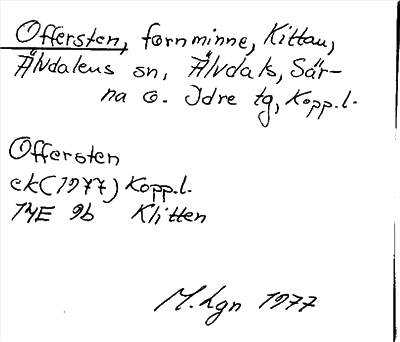 Offersten, fornminne, Kittau,
Älvdalens sn, Älvdals, Sär-
na o. Idre tg, Kopp.l.
Offersten
ek (1977) Kopp.l.
14E 9b Klitten
M. Lgn 1977